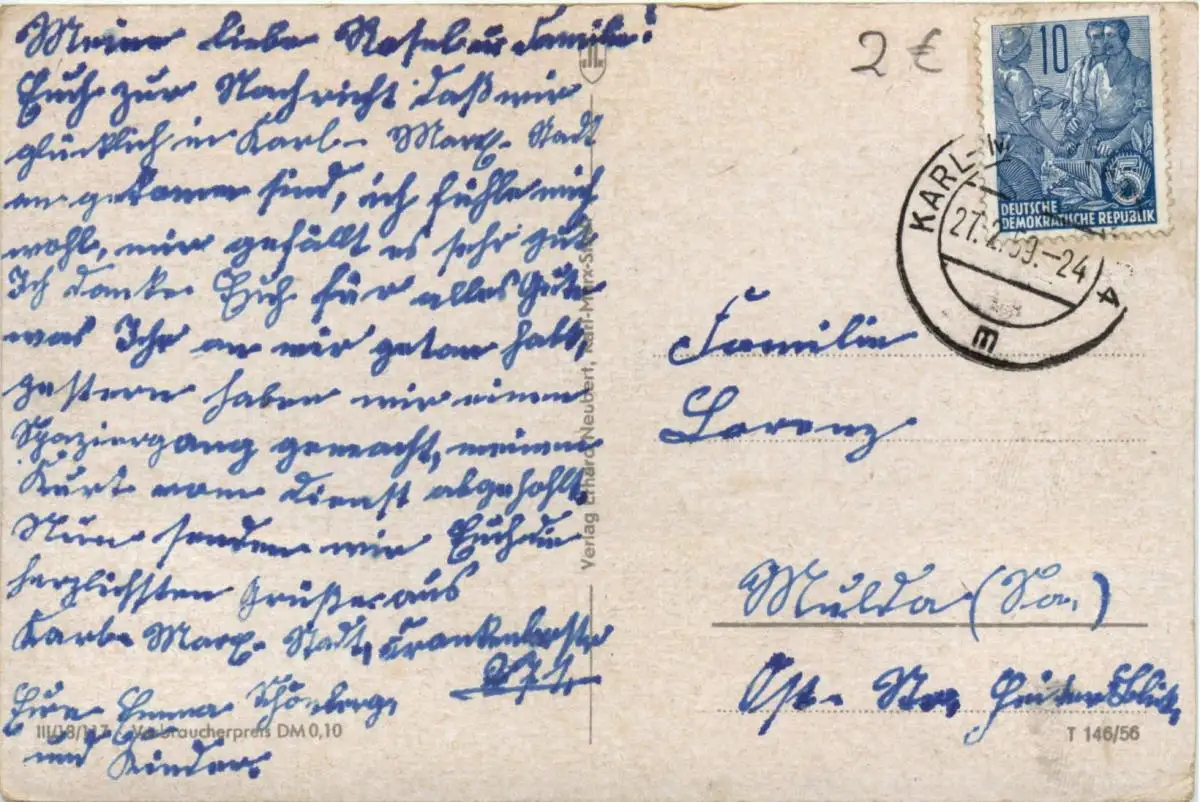 Meine liebe Rosel u. Familie!
Euch zur Nachricht daß wir
glücklich in Karl-Marx-Stadt
angekomen sind, ich fühle mich
wohl, mir gefällt es sehr gut
Ich danke Euch für alles Gute
was Ihr an mir getan habt,
gestern haben wir einen
Spaziergang gemacht, meinen
Kurt vom Dienst abgehohlt.
Nun senden wir Euch die
herzlichsten Grüße aus
Karl-Marx-Stadt, Frankenbergstr
Eure Emma Schönberg,
und Kinder.
III/18/117 Verbraucherpreis DM 0,10
Verlag Erhard Neubert, Karl-Marx-Stadt
2 €
10
5
DEUTSCHE
DEMOKRATISCHE REPUBLIK
KARL-M
27.2.59.-24
4
E
Familie
Lorenz
Mulda (Sa.)
Ost-Str.
T 146/56